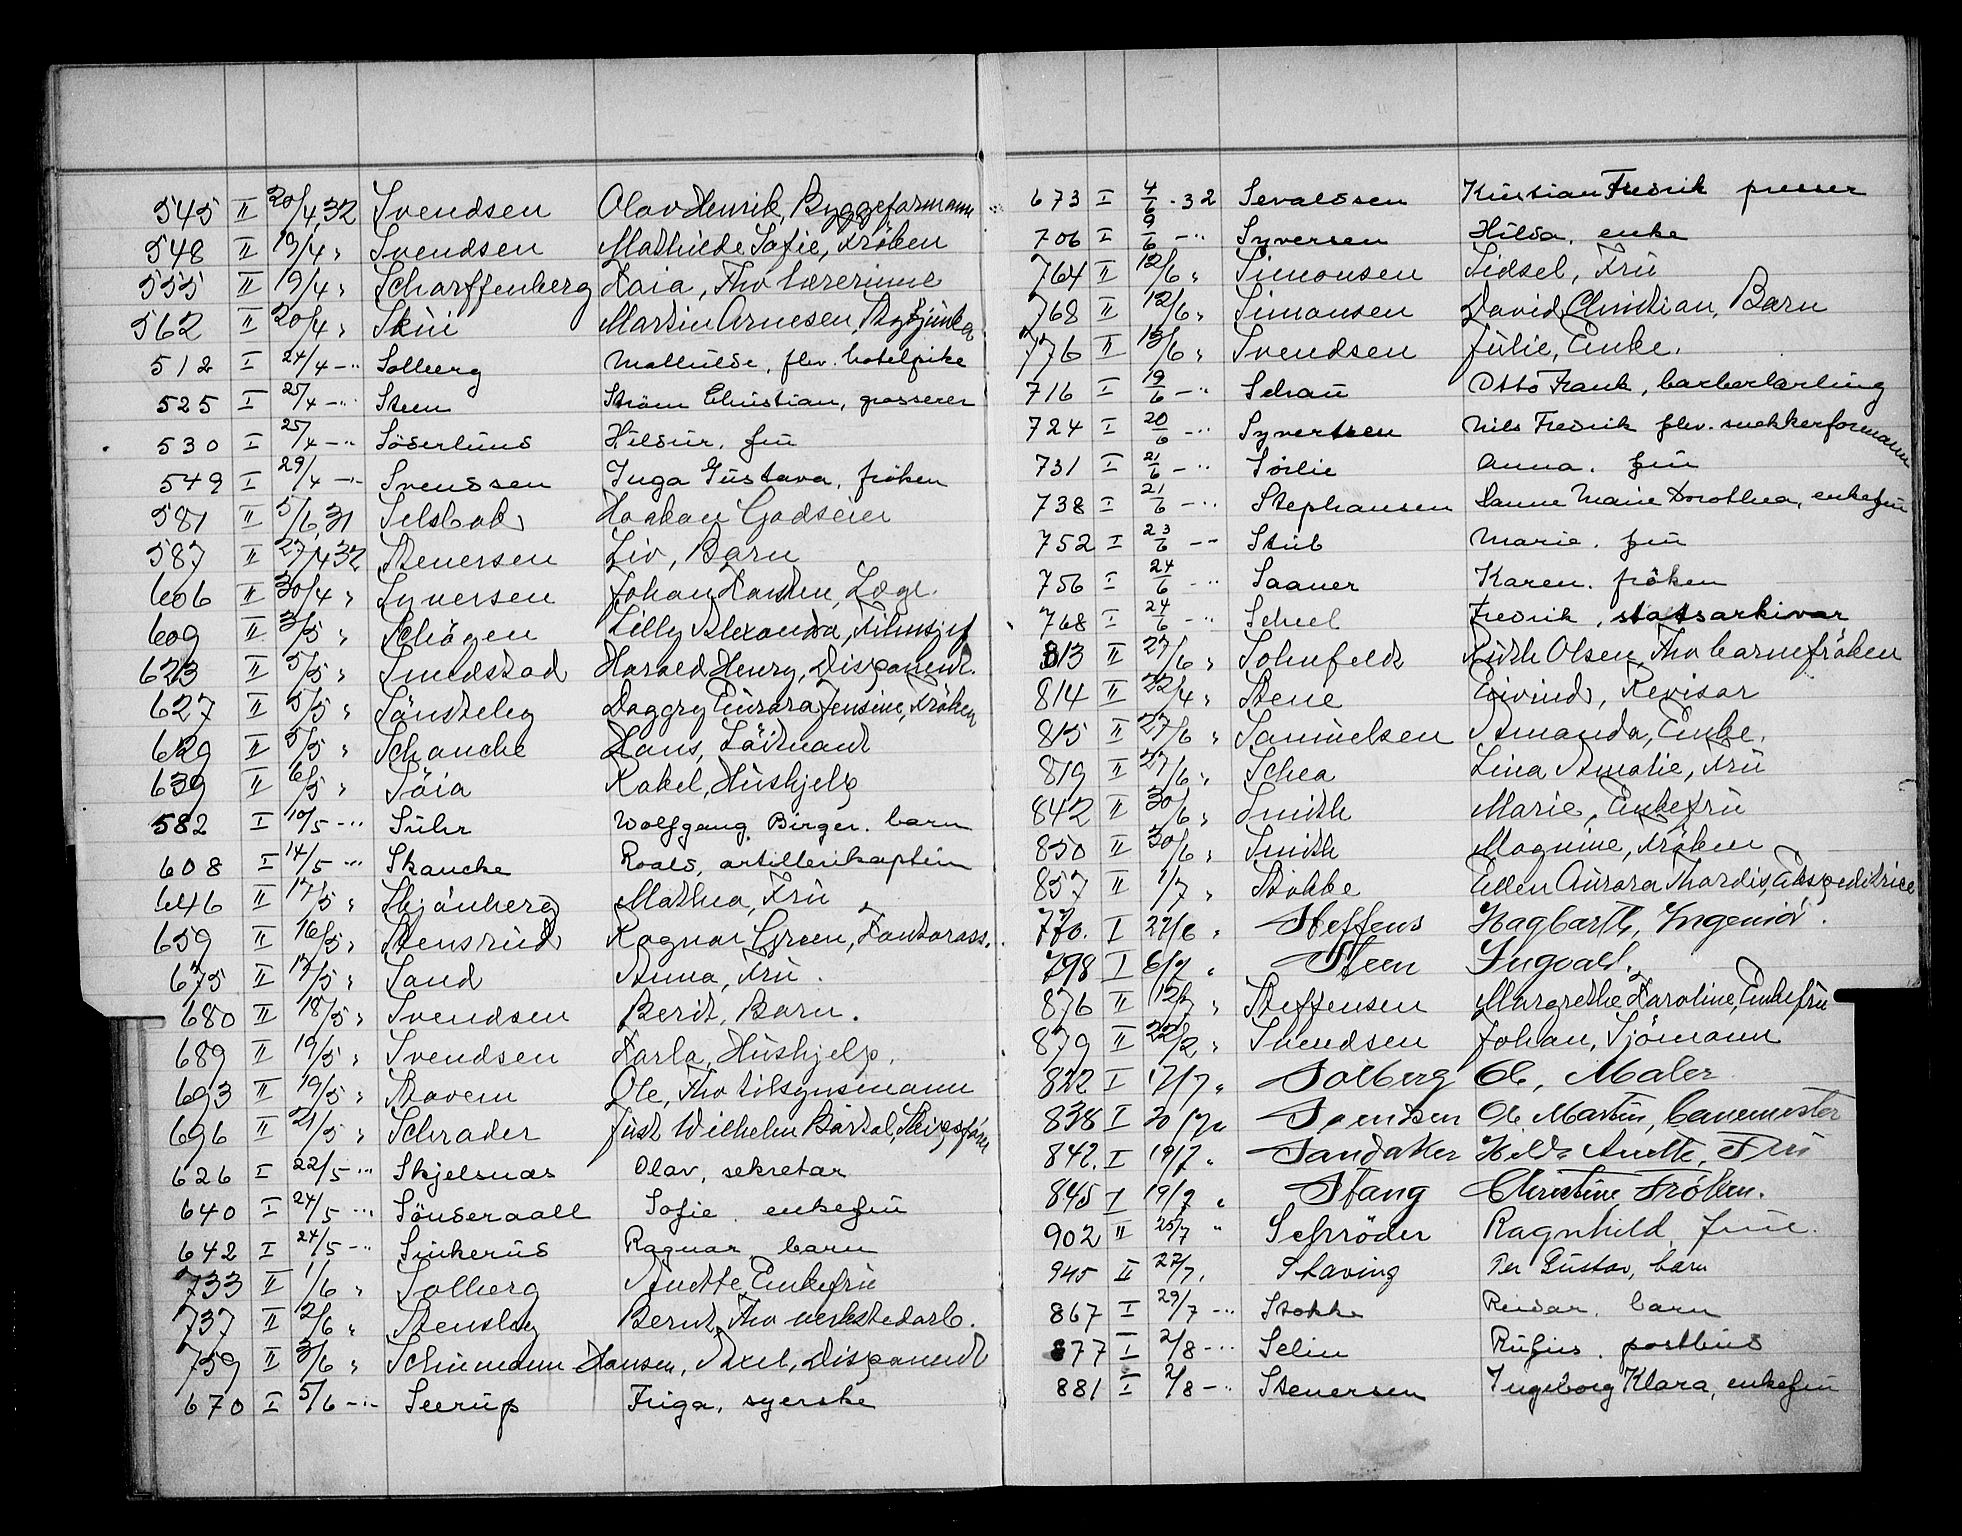 545 II 20/4 32 Svendsen Olav Henrik, Byggeformann
548 II 19/4 " Svendsen Mathilde Sofie, Frøken
555 II 19/4 " Scharffenberg Kaia, Fhv lærerinne
562 II 20/4 " Skui Martin Arnesen
512 I 24/4 -"- Solberg Mathilde, flv. hotelpike
525 I 25/4 -"- Steen Strøm Christian, grosserer
530 I 25/4 -"- Söderlund Hildur, fru
549 I 29/4 -"- Svendsen Inga Gustava, fröken
581 II 5/6 31 Selsbak Haakon Godseier
587 II 27/4 32 Stenersen Liv, Barn
606 II 30/4 " Syversen Johan Karsten, Læge.
609 II 3/5 " Schøgen Lilly Alexandra,
623 II 5/5 " Smedstad Harald Henry, Disponent.
627 II 5/5 " Sønsteby Daggry Aurora Jensine, Frøken
629 II 5/5 " Schanche Hans, Løitnant
639 II 6/5 " Søia Rakel, Hushjelp
582 I 10/5 -"- Suhr Wolfgang Birger. barn
608 I 14/5 -"- Skancke Roald, artillerikaptein
646 II 17/5 " Skjønberg Mathea, Fru
659 II 16/5 " Stensrud Ragnar Green, Kontorass.
675 II 17/5 " Sand Anna, Fru.
680 II 18/5 " Svendsen Berit, Barn.
689 II 19/5 " Svendsen Karla, Hushjelp.
693 II 19/5 " Stavem Ole, Fhv tilsynsmann
696 II 21/5 " Schrader Just Wilhelm Bartol, Skipsfører
626 I 22/5 -"- Skjelsnas Olav, sekretær
640 I 24/5 -"- Sönderaall Sofie. enkefru
642 I 24/5 -"- Sinkerud Ragnar. barn
733 II 1/6 " Solberg Anette, Enkefru
737 II 2/6 " Stensby Bernt, Fhv verkstedarb.
759 II 3/6 " Schumann Hansen, Axel, Disponent
670 I 5/6 -"- Seerup Friga, syerske
673 I 4/6 - 32 Sevaldsen Kristian Fredrik presser
706 I 9/6 -"- Syversen Hilda, enke
764 II 12/6 " Simonsen Sidsel, Fru
768 II 12/6 " Simonsen David Christian, Barn
776 II 13/6 " Svendsen Julie, Enke.
716 I 19/6 -"- Schau Otto Frank, barberlærling
724 I 20/6 -"- Syvertsen Nils Fredrik flv. snekkerformann
731 I 21/6 -"- Sørlie Anna. fru
738 I 21/6 -"- Stephansen Hanne Marie Dorothea, enkefru
752 I 23/6 -"- Stub Marie. fru
756 I 24/6 -"- Saaner Karen. fröken
768 I 24/6 -"- Scheel Fredrik, statsarkivar
813 II 27/6 " Sohnfeldt Ruth Olsen, Fhv barnefrøken
814 II 22/4 " Stene Eivind, Revisor
815 II 27/6 " Samuelsen Amanda, Enke.
819 II 27/6 " Schea Lina Amalie, Fru
842 II 30/6 " Smith Marie, Enkefru
850 II 30/6 " Smith Magnine, Frøken
857 II 1/7 " Stokke Ellen Aurora Thordis, Ekspeditrice
770. I 27/6 " Steffens Hagbarth, Ingeniør.
798 I 6/7 " Steen Ingvald.
876 II 12/7 " Steffensen Margrethe Karoline, Enkefru
879 II 22/2 " Svendsen Johan, Sjømann
822 I 17/7 " Solberg Ole, Maler
838 I 20/7 " Svendsen Ole Martin, banemester
842. I 19/7 " Sandaker Hilda Anette, Fru
845 I 19/7 " Stang Christine Frøken.
902 II 25/7 " Schrøder Ragnhild, frue.
945 II 27/7. Staving Per Gustav, barn
867 I 29/7 -"- Stokke Reidar. barn
877 I 2/8 -"- Selin Rufus. postbud
881 I 2/8 -"- Stenersen Ingeborg Klara, enkefru